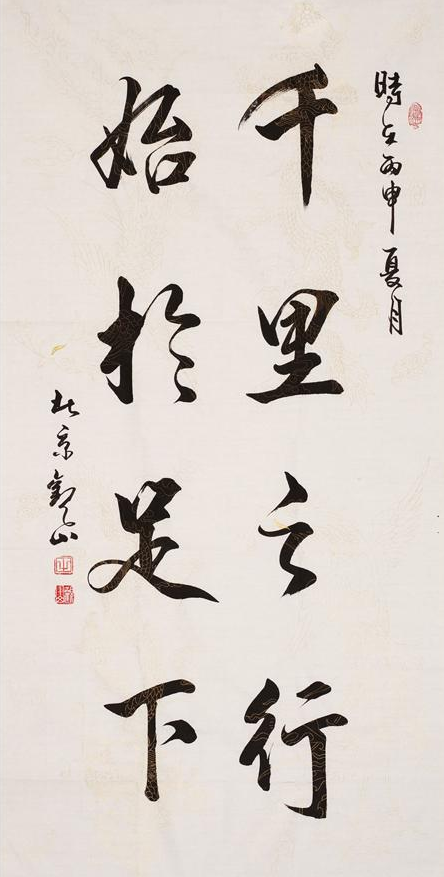 時在丙申夏月
千里之行
始於足下
北京龍山